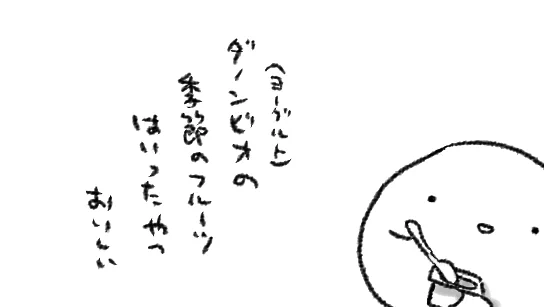 (ヨーグルト)
ダノンビオの
季節のフルーツ
はいったやつ
おいしい